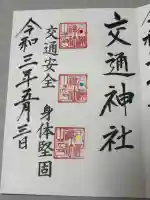 交通神社
交通安全
身体堅固
令和三年五月三日